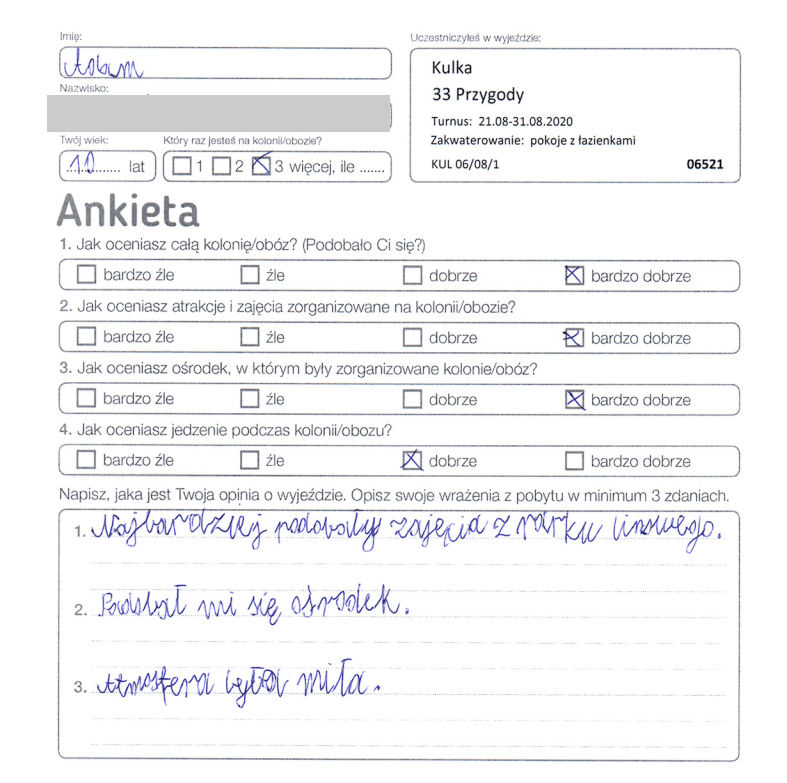 Imię:
Adam
Nazwisko:
Twój wiek:
10 lat
Który raz jesteś na kolonii/obozie?
1 2 3 więcej, ile .......
Uczestniczyłeś w wyjeździe:
Kulka
33 Przygody
Turnus: 21.08-31.08.2020
Zakwaterowanie: pokoje z łazienkami
KUL 06/08/1 06521
Ankieta
1. Jak oceniasz całą kolonię/obóz? (Podobało Ci się?)
bardzo źle źle dobrze bardzo dobrze
2. Jak oceniasz atrakcje i zajęcia zorganizowane na kolonii/obozie?
bardzo źle źle dobrze bardzo dobrze
3. Jak oceniasz ośrodek, w którym były zorganizowane kolonie/obóz?
bardzo źle źle dobrze bardzo dobrze
4. Jak oceniasz jedzenie podczas kolonii/obozu?
bardzo źle źle dobrze bardzo dobrze
Napisz, jaka jest Twoja opinia o wyjeździe. Opisz swoje wrażenia z pobytu w minimum 3 zdaniach.
1. Najbardziej podobały zajęcia z parku linowego.
2. Podobał mi się ośrodek.
3. Atmosfera była miła.